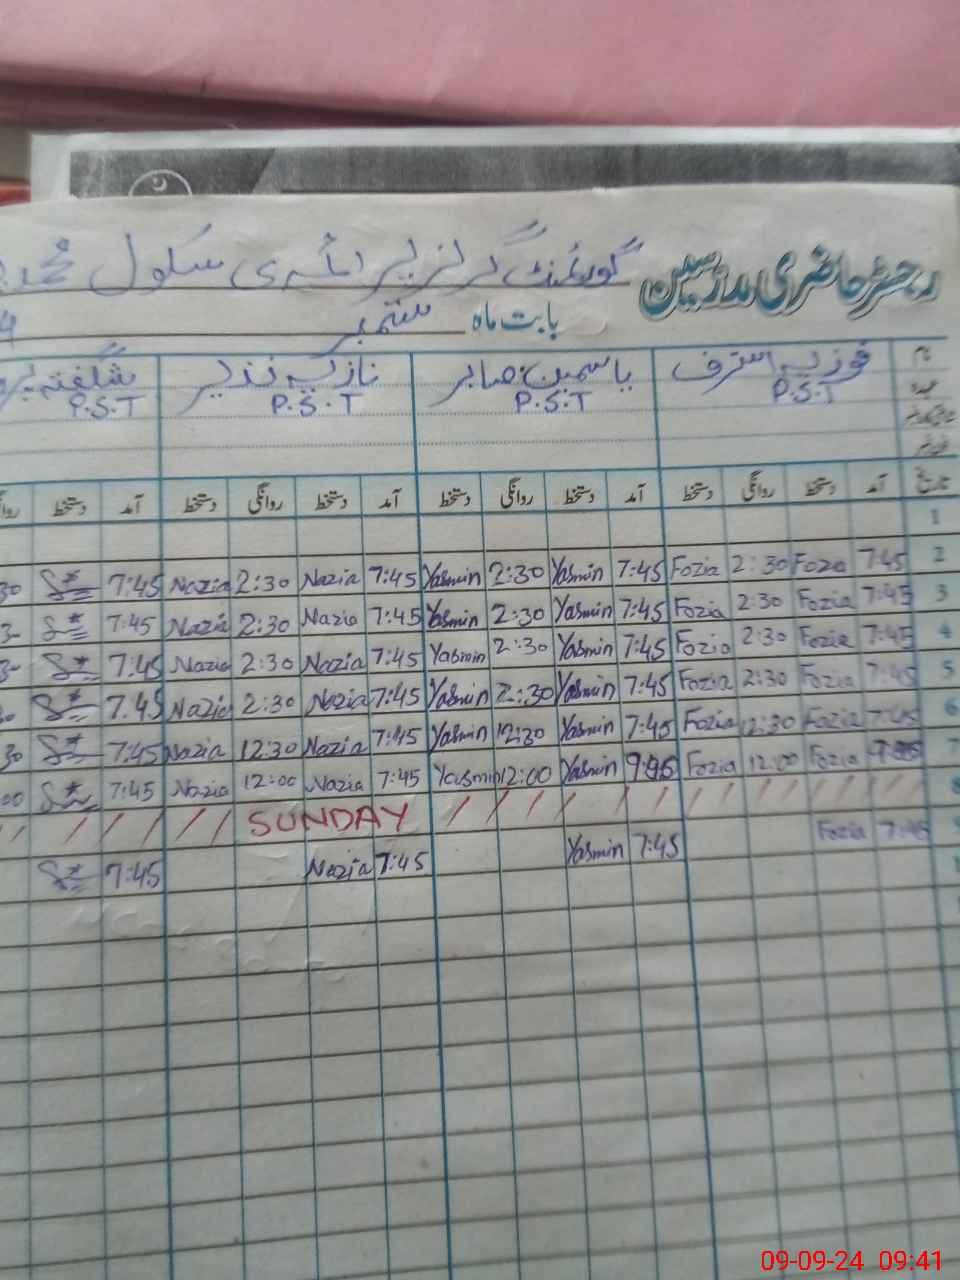 رجسٹر حاضری مدرسین گورنمنٹ گرلز پرائمری سکول
بابت ماہ ستمبر 4
نام فوزیہ اشرف یاسمین صابر نازیہ نذیر شگفتہ
عہدہ P.S.T P.S.T P.S.T P.S.T
تاریخ آمد دستخط روانگی دستخط آمد دستخط روانگی دستخط آمد دستخط روانگی دستخط آمد دستخط
1
30 7:45 Nazia 2:30 Nazia 7:45 Yasmin 2:30 Yasmin 7:45 Fozia 2:30 Fozia 7:45 2
7:45 Nazia 2:30 Nazia 7:45 Yasmin 2:30 Yasmin 7:45 Fozia 2:30 Fozia 7:45 3
7:45 Nazia 2:30 Nazia 7:45 Yasmin 2:30 Yasmin 7:45 Fozia 2:30 Fozia 7:45 4
7:45 Nazia 2:30 Nazia 7:45 Yasmin 2:30 Yasmin 7:45 Fozia 2:30 Fozia 7:45 5
30 7:45 Nazia 12:30 Nazia 7:45 Yasmin 12:30 Yasmin 7:45 Fozia 12:30 Fozia 7:45 6
00 7:45 Nazia 12:00 Nazia 7:45 Yasmin 12:00 Yasmin Fozia 12:00 Fozia 7
SUNDAY 8
7:45 Nazia 7:45 Yasmin 7:45 Fozia 7:45
09-09-24 09:41